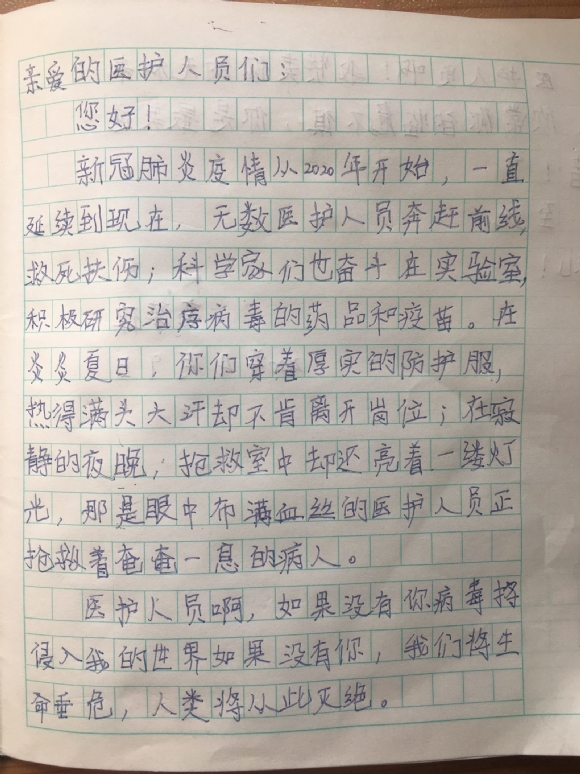 亲爱的医护人员们：
您好！
新冠肺炎疫情从2020年开始，一直
延续到现在，无数医护人员奔赴前线，
救死扶伤；科学家们也奋斗在实验室，
积极研究治疗病毒的药品和疫苗。在
炎炎夏日，你们穿着厚实的防护服，
热得满头大汗却不肯离开岗位；在寂
静的夜晚，抢救室中却还亮着一缕灯
光，那是眼中布满血丝的医护人员正
抢救着奄奄一息的病人。
医护人员啊，如果没有你病毒将
侵入我的世界如果没有你，我们将生
命垂危，人类将从此灭绝。